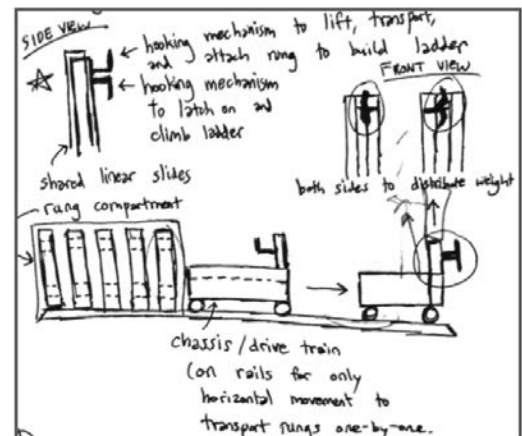 SIDE VIEW
hooking mechanism to lift, transport,
and attach rung to build ladder
hooking mechanism
to latch on and
climb ladder
FRONT VIEW
shared linear slides
both sides to distribute weight
rung compartment
chassis/drive train
(on rails for only
horizontal movement to
transport rungs one-by-one.